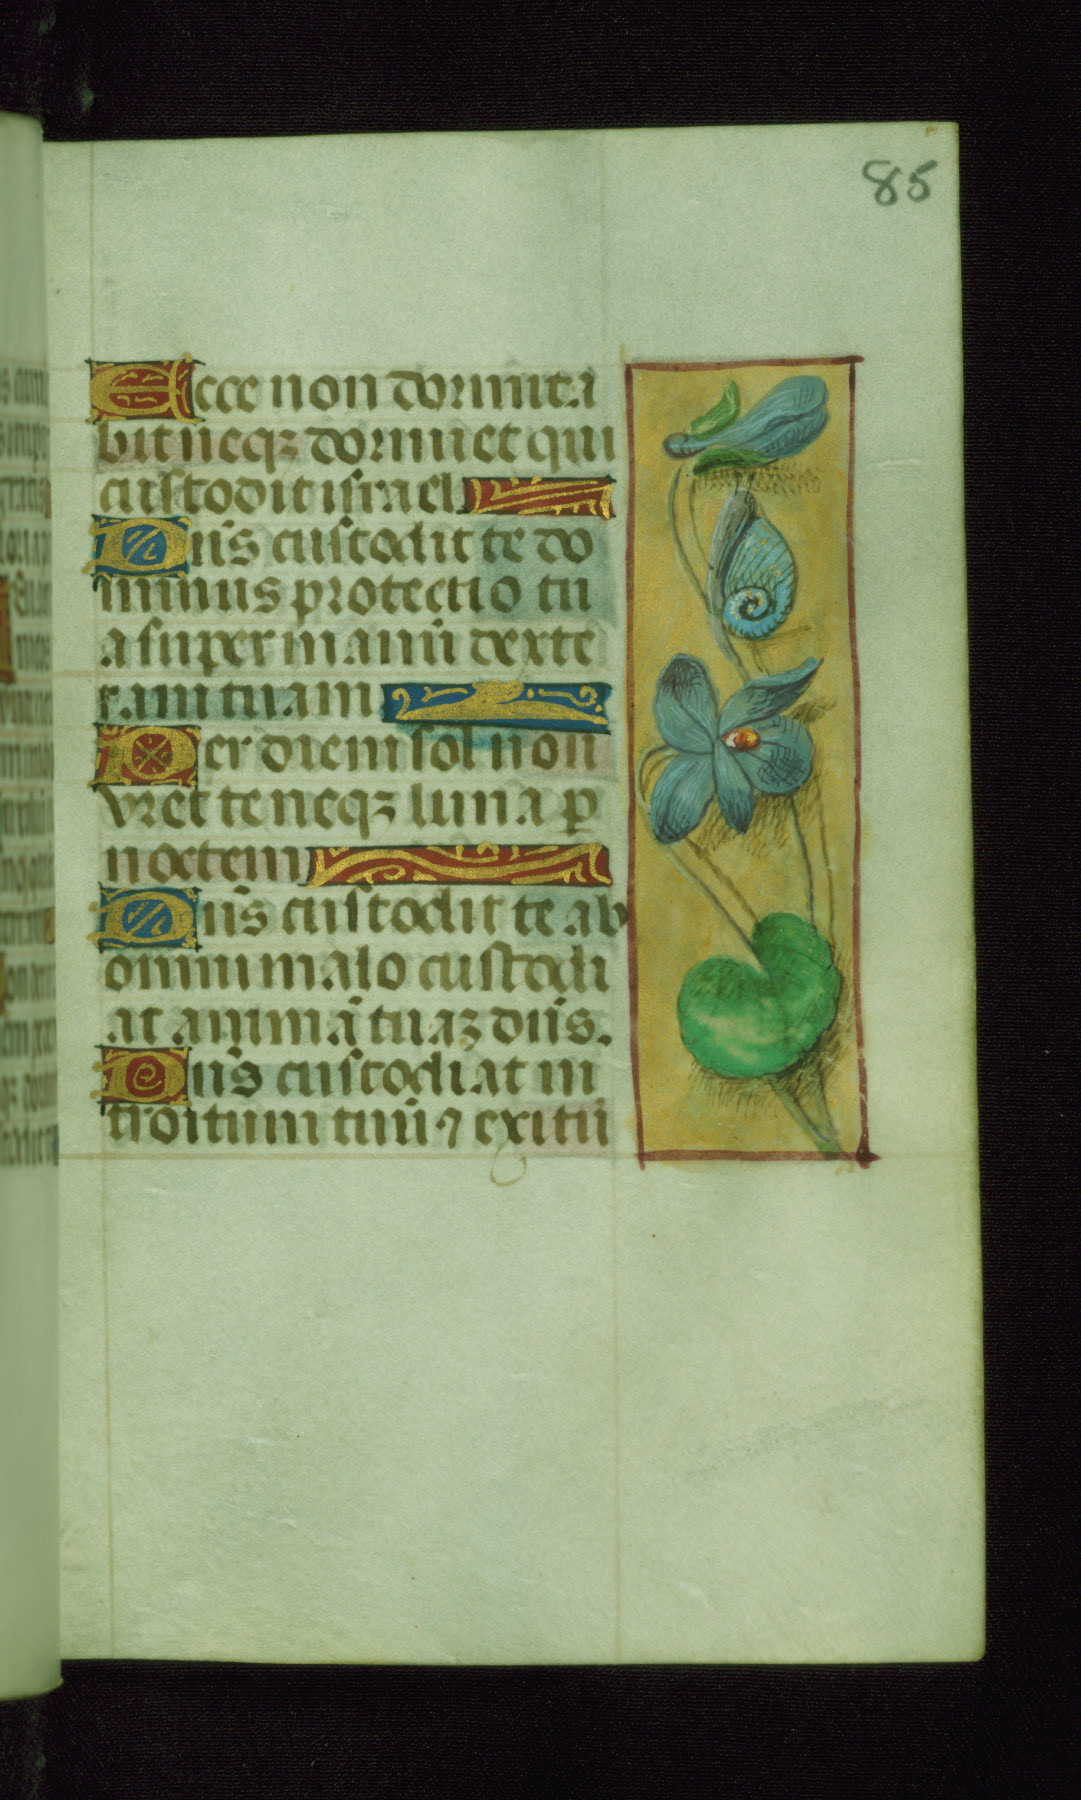 85
Ecce non dormita
bit neqꝫ dormiet qui
custodit israel
Dn̄s custodit te do
minus protectio tu
a super manū dexte
ram tuam
Per diem sol non
vret te neqꝫ luna ꝑ
noctem
Dn̄s custodit te ab
omni malo custodi
at animā tuaꝫ dn̄s.
Dn̄s custodiat in
troitum tuū ⁊ exitū